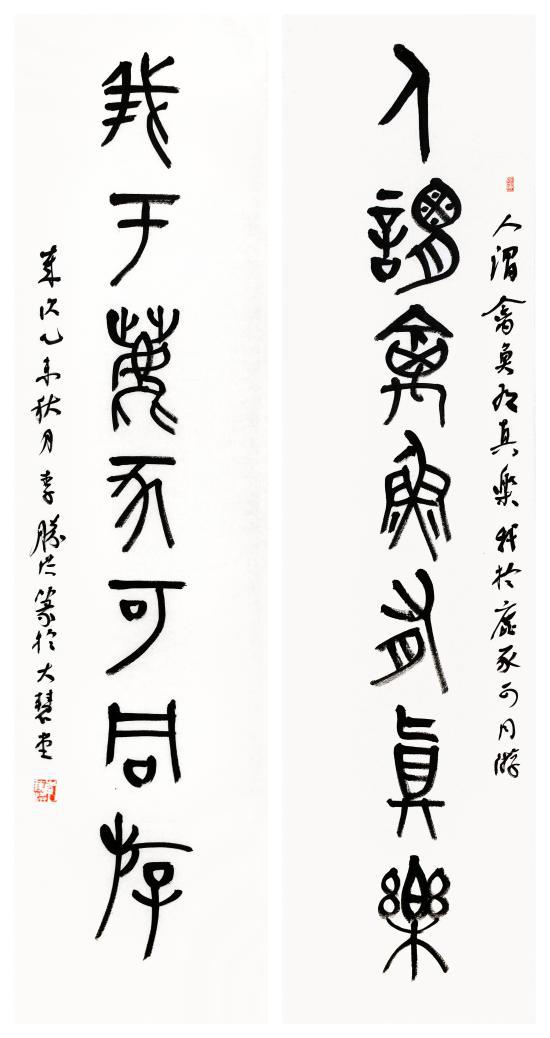 人謂禽魚有真樂我於鹿豕可同游
人謂禽魚有眞樂
我于鹿豕可同斿
歲次乙未秋月李勝洪篆於大慧堂